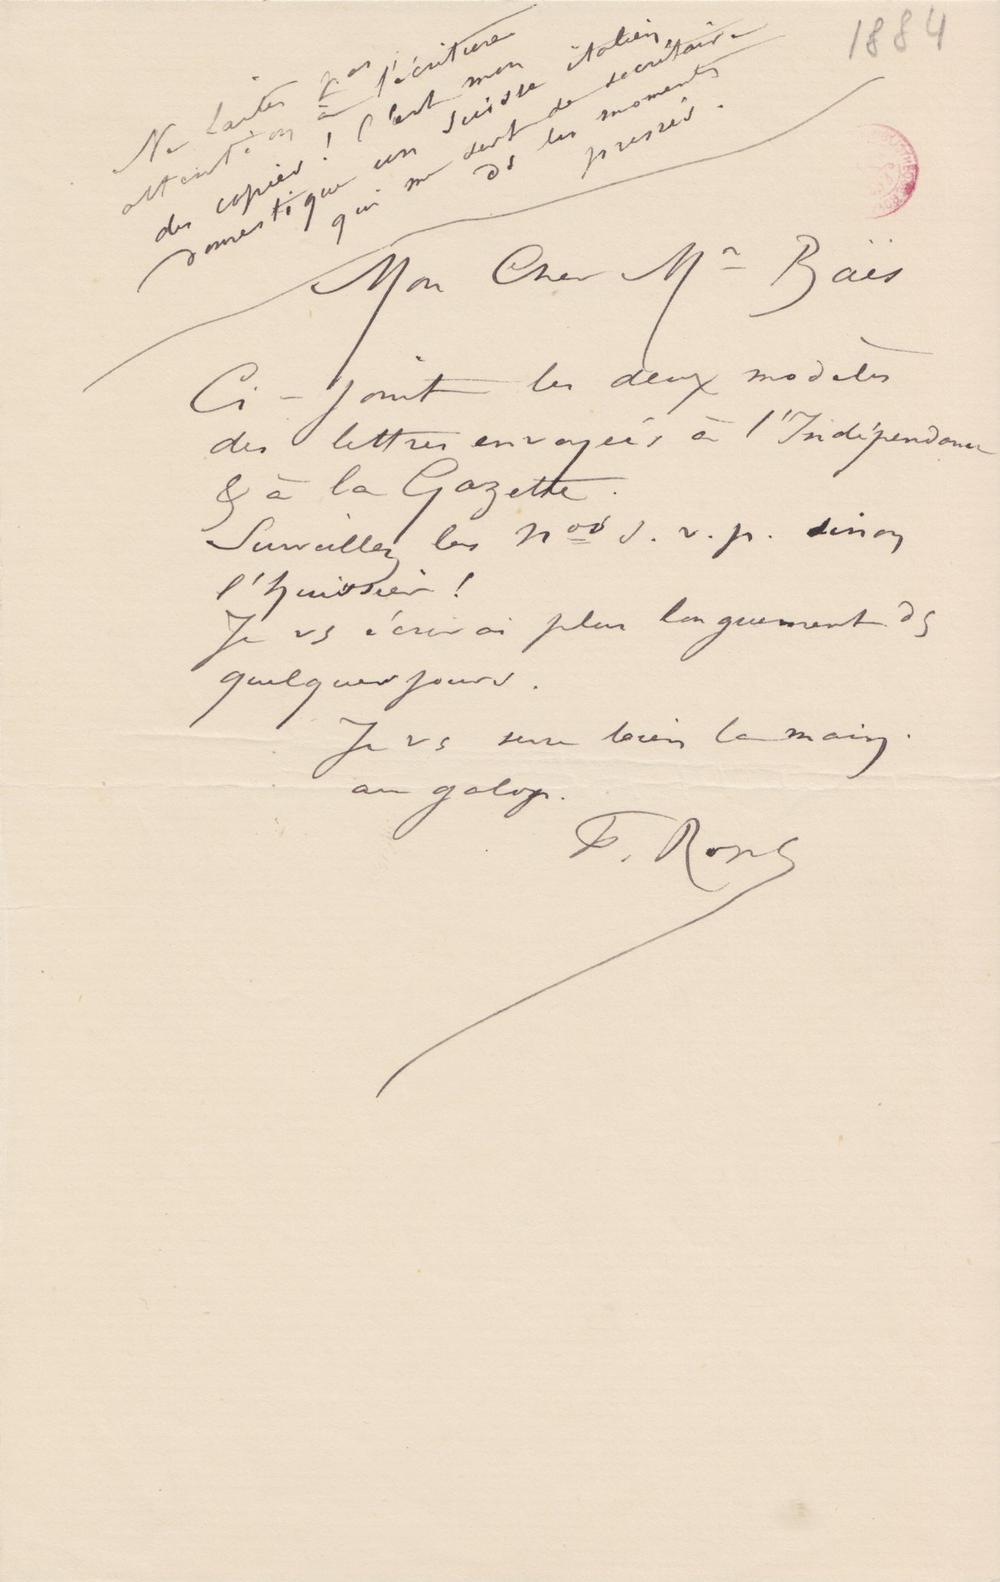 1884
Ne faites pas
attention à l'écriture
des copies ! C'est mon
domestique un suisse italien
qui me sert de secrétaire
ds les moments
pressés.
Mon Cher Mr Baës
Ci-joint les deux modèles
des lettres envoyées à l'Indépendance
& à la Gazette.
Surveillez les nos s. v. p. sinon
l'huissier !
Je vs écrirai plus longuement ds
quelques jours.
Je vs serre bien la main.
au galop.
F. Rops